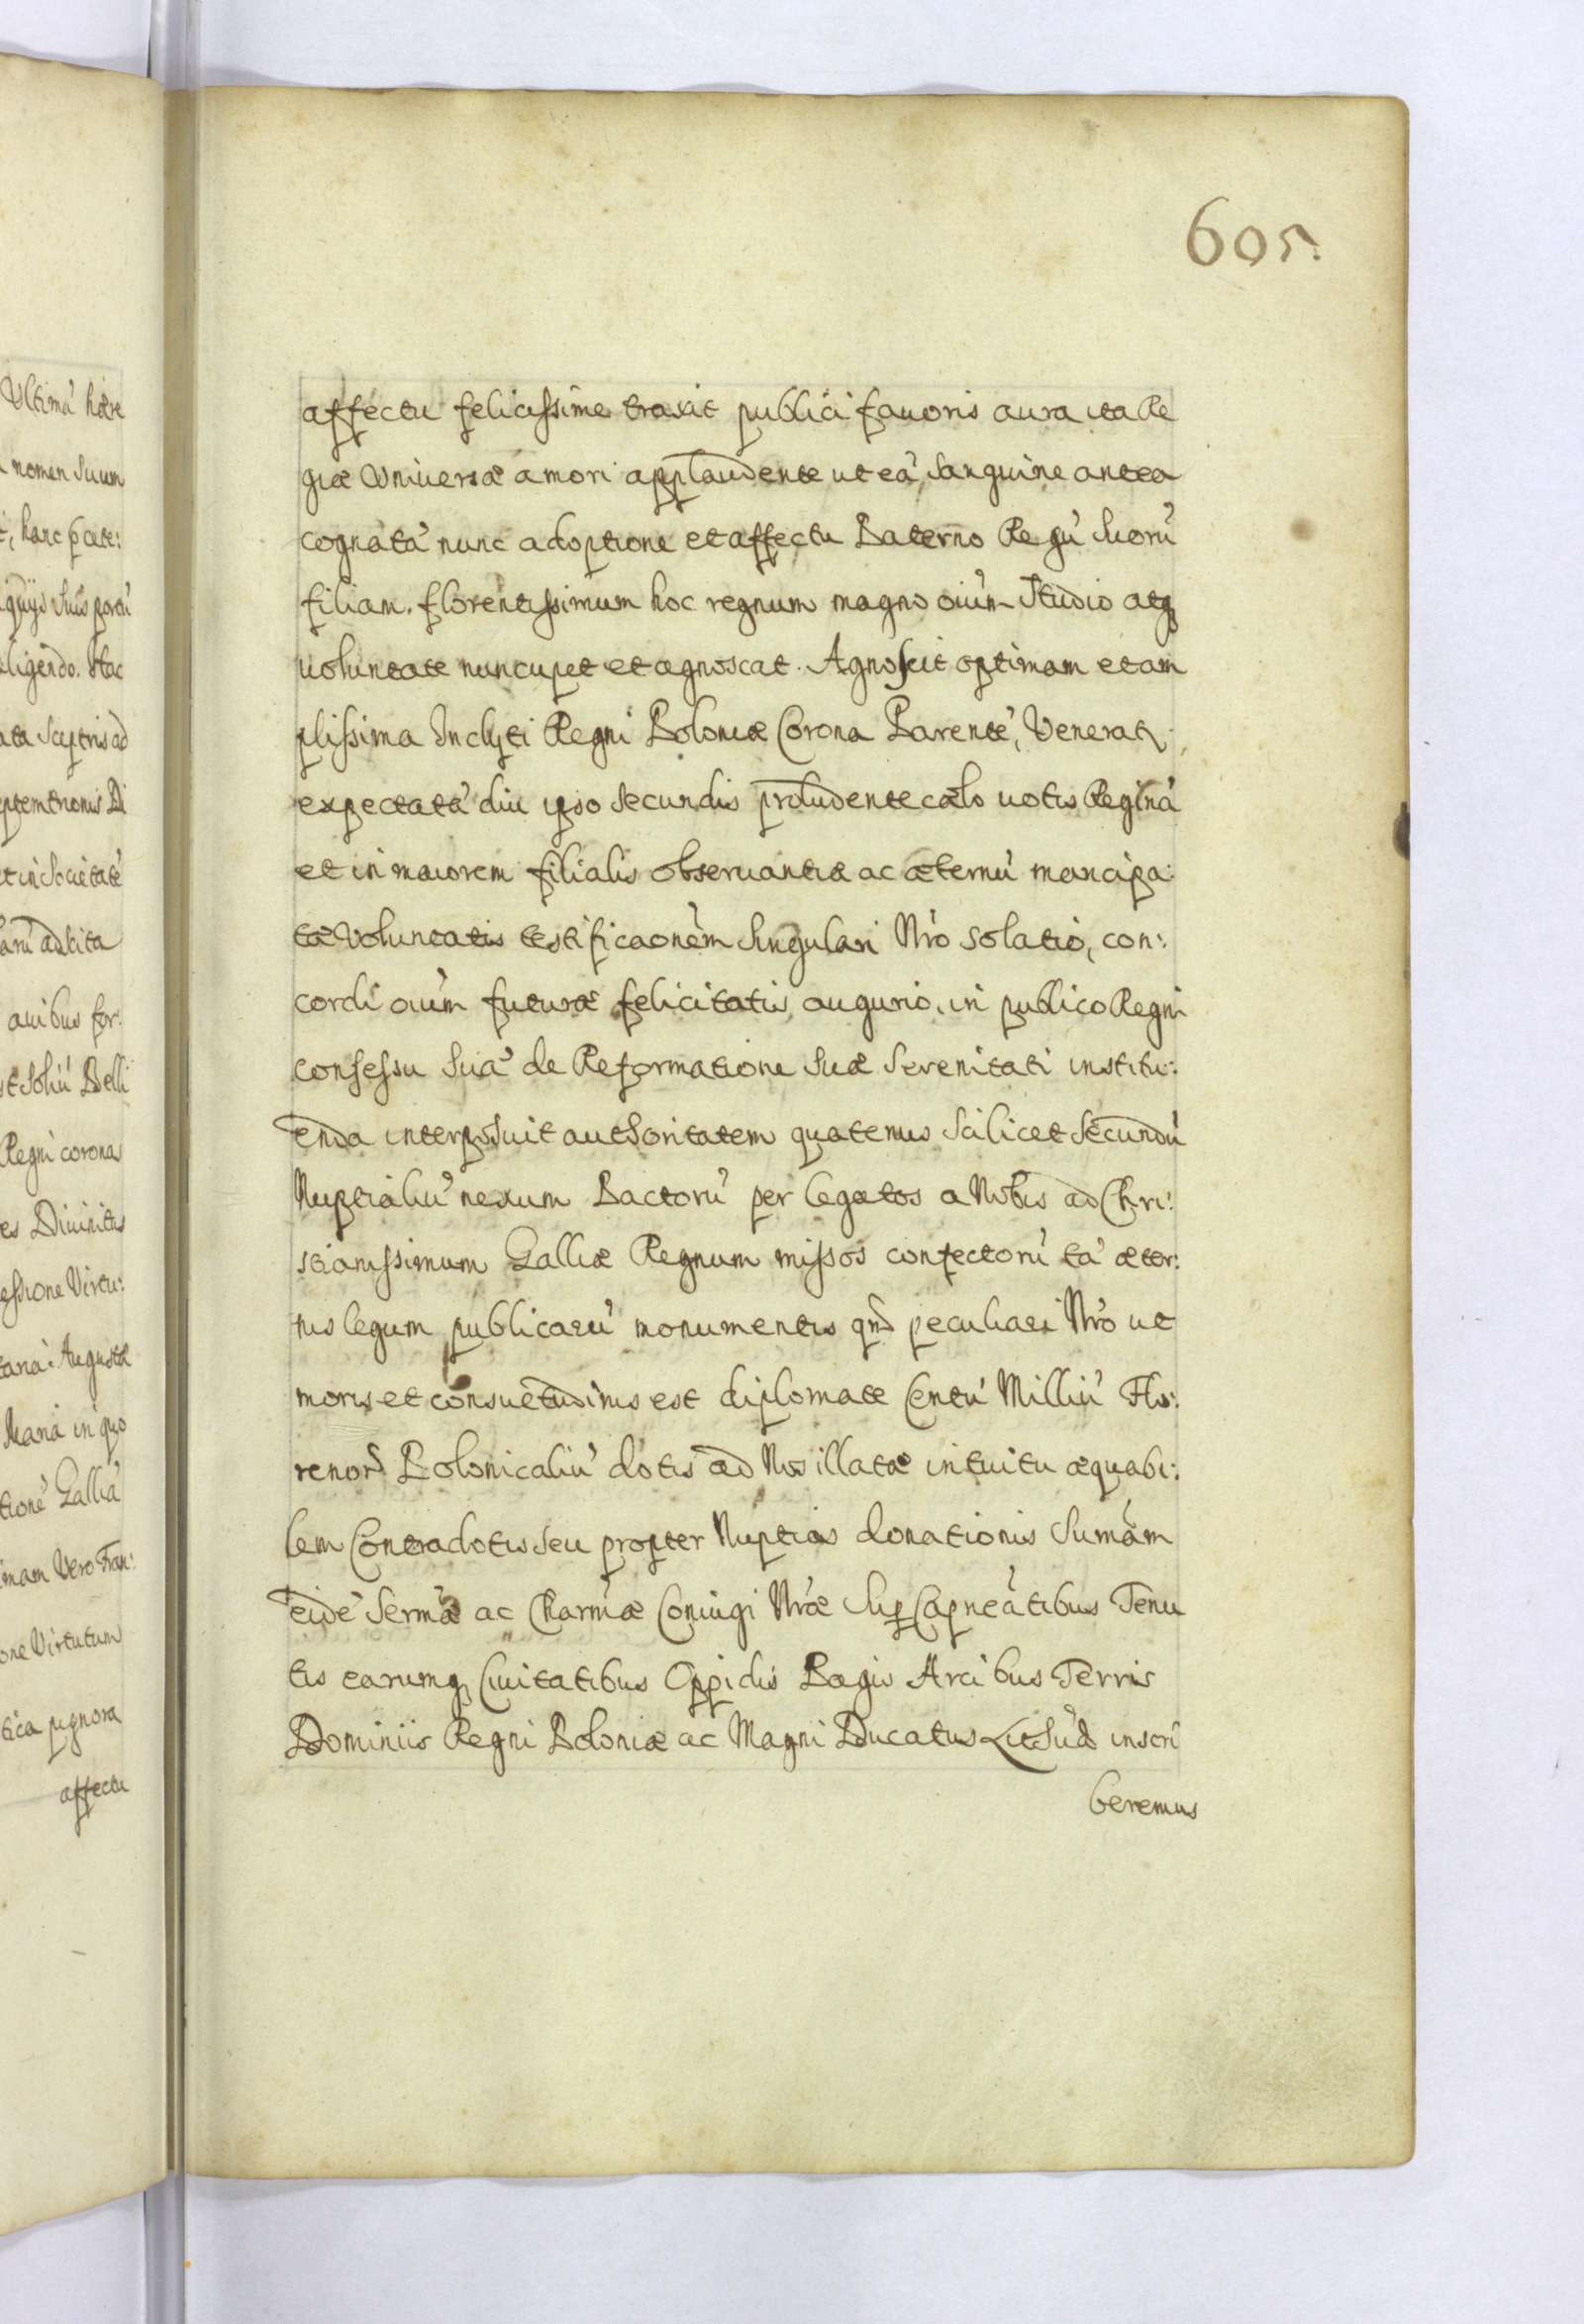 605.
Ultimã hære
nomen suum
hanc p̱ cæte:
quijs suis parẽ
eligendo. Hac
ata sceptris ad
eptemtrionis Di
et in Societatẽ
arũ adscita
auibus for:
st soliũ Belli
Regni corona
es Diuinitus
essione Virtu:
Augusta
Maria in quo
tionẽ Galliã
imam Vero Fran:
one Virtutum
tica pignora
affectu
affectu felicissime traxit publici fauoris aura ita Re
giæ Vniuersæ amori applaudente ut eã, sanguine antea
cognatã nunc adoptione et affectu Paterno Regũ suorũ
filiam. florentissimum hoc regnum magno oium̃ Studio atq
uoluntate nuncupet et agnoscat. Agnoscit optimam et am
plissima Inclyti Regni Poloniæ Corona Parentẽ, Veneratr
expectatã diu ipso secundis præludente cælo uotis Reginã
et in maiorem filialis obseruantiæ ac æternũ mancipa:
tæ Voluntatis testificaonem̃ singulari Nrõ solatio, con:
cordi oium̃ futuræ felicitatis augurio, in publico Regni
consessu Suã de Reformatione Suæ Serenitati institu:
enda interposuit authoritatem quatenus scilicet Secundũ
Nuptialiũ nexum Pactorũ per legatos a Nobis ad Chri:
stianissimum Galliæ Regnum missos confectorũ tã æter:
nis legum publicarũ monumentis qm̃ peculiari Nrõ ut
moris et consuetudinis est diplomate Centũ Milliũ Flo:
renor̃ Polonicaliũ dotis ad Nos illatæ intuitu æquabi:
lem Contradotis seu propter Nuptias donationis Sum̃am
eidẽ Serm̃æ ac Charm̃æ Coniugi Nrã̃e sup Capneãtibus Tenu
tis earumq Ciuitatibus Oppidis Pagis Arcibus Terris
Dominiis Regni Poloniæ ac Magni Ducatus Lithũæ inscri
beremus